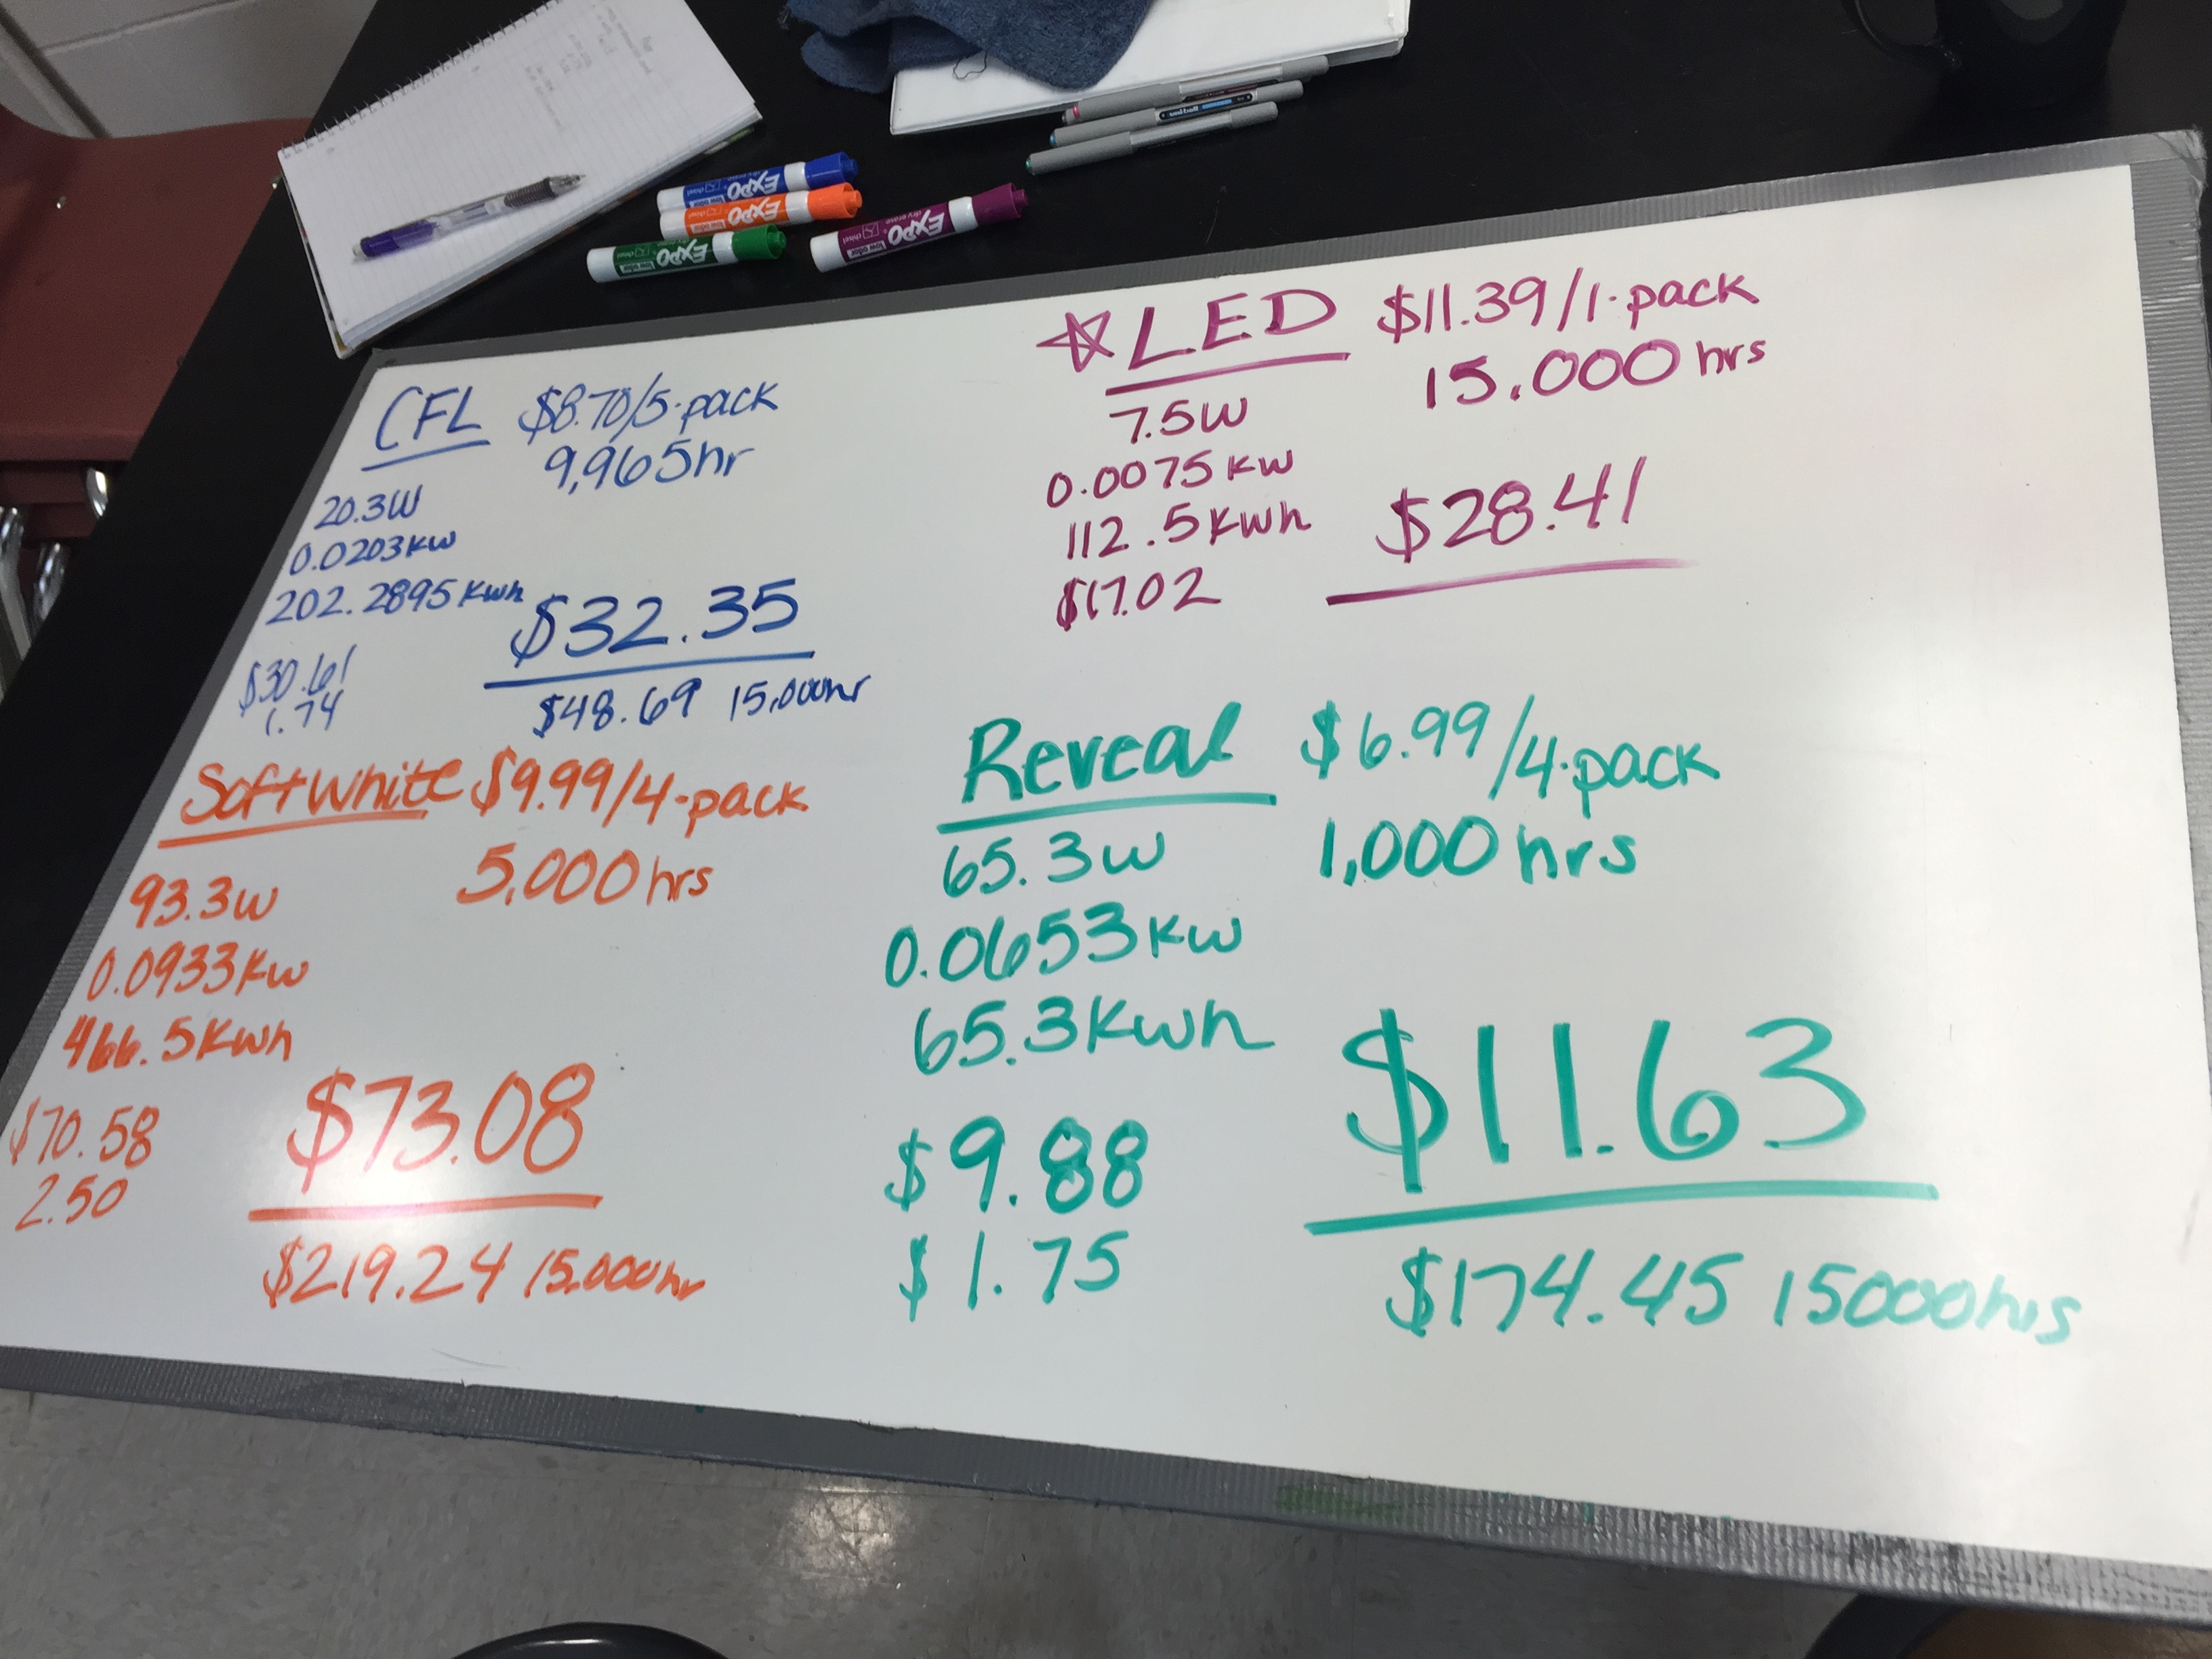 EXPO
EXPO
EXPO
EXPO
CFL $8.70/5-pack
9,965hr
20.3W
0.0203kw
202.2895 Kwh
$32.35
$30.61
1.74
$48.69 15,000hr
☆LED $11.39/1-pack
15,000 hrs
7.5W
0.0075 KW
112.5 Kwh
$17.02
$28.41
Soft white $9.99/4-pack
5,000 hrs
93.3w
0.0933Kw
466.5 Kwh
$70.58
2.50
$73.08
$219.24 15,000hr
Reveal $6.99/4-pack
1,000 hrs
65.3w
0.0653 KW
65.3 Kwh
$9.88
$1.75
$11.63
$174.45 15000hrs